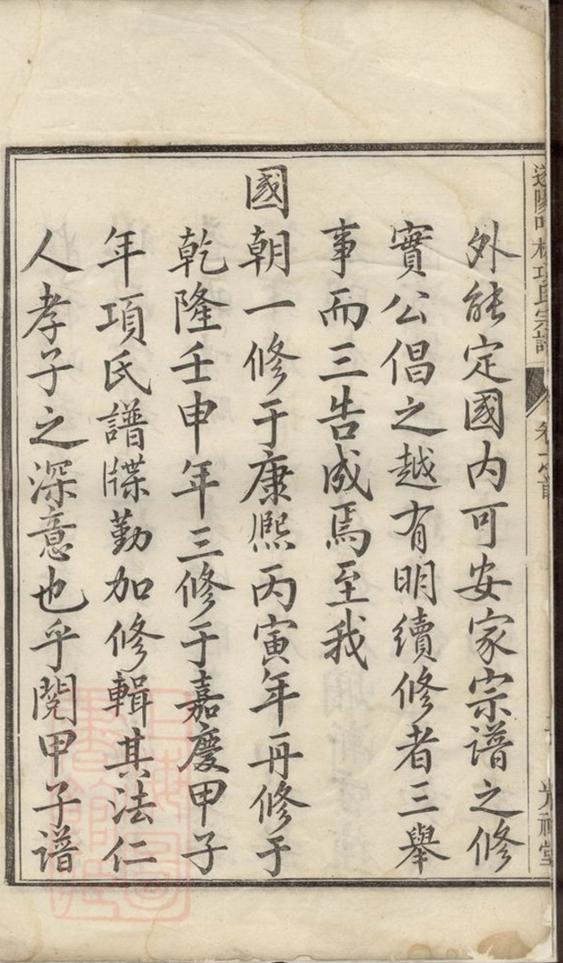 外能定國内可安家宗譜之修
實公倡之越有明續修者三舉
事而三告成焉至我
國朝一修于康熙丙寅年再修于
乾隆壬申年三修于嘉慶甲子
年項氏譜牒勤加修輯其法仁
人孝子之深意也乎閱甲子譜
項氏宗譜
光裕堂